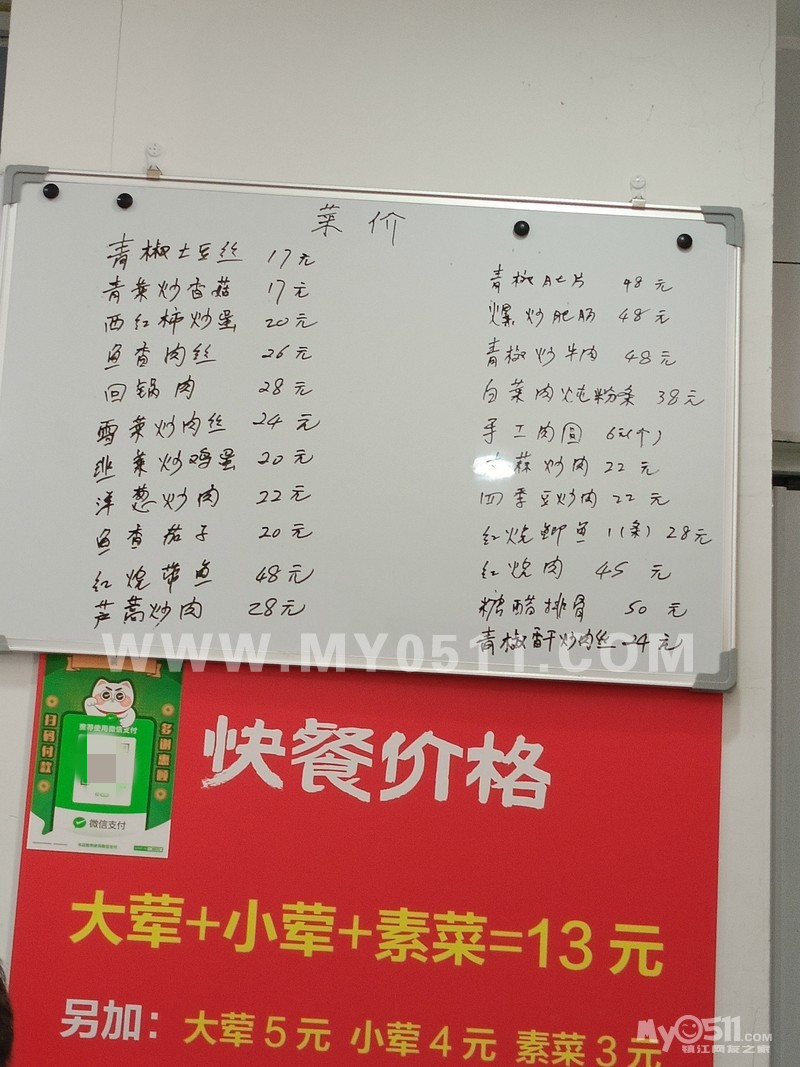 菜价
青椒土豆丝 17元
青菜炒香菇 17元
西红柿炒蛋 20元
鱼香肉丝 26元
回锅肉 28元
雪菜炒肉丝 24元
韭菜炒鸡蛋 20元
洋葱炒肉 22元
鱼香茄子 20元
红烧带鱼 48元
芦蒿炒肉 28元
青椒肚片 48元
爆炒肥肠 48元
青椒炒牛肉 48元
白菜肉炖粉条 38元
手工肉圆 6元(个)
蒜炒肉 22元
四季豆炒肉 22元
红烧鲫鱼 1(条) 28元
红烧肉 45元
糖醋排骨 50元
青椒香干炒肉丝 24元
WWW.MY0511.COM
推荐使用微信支付
扫码付款
多谢惠顾
微信支付
快餐价格
大荤+小荤+素菜=13元
另加：大荤5元 小荤4元 素菜3元
My0511.COM
镇江网友之家